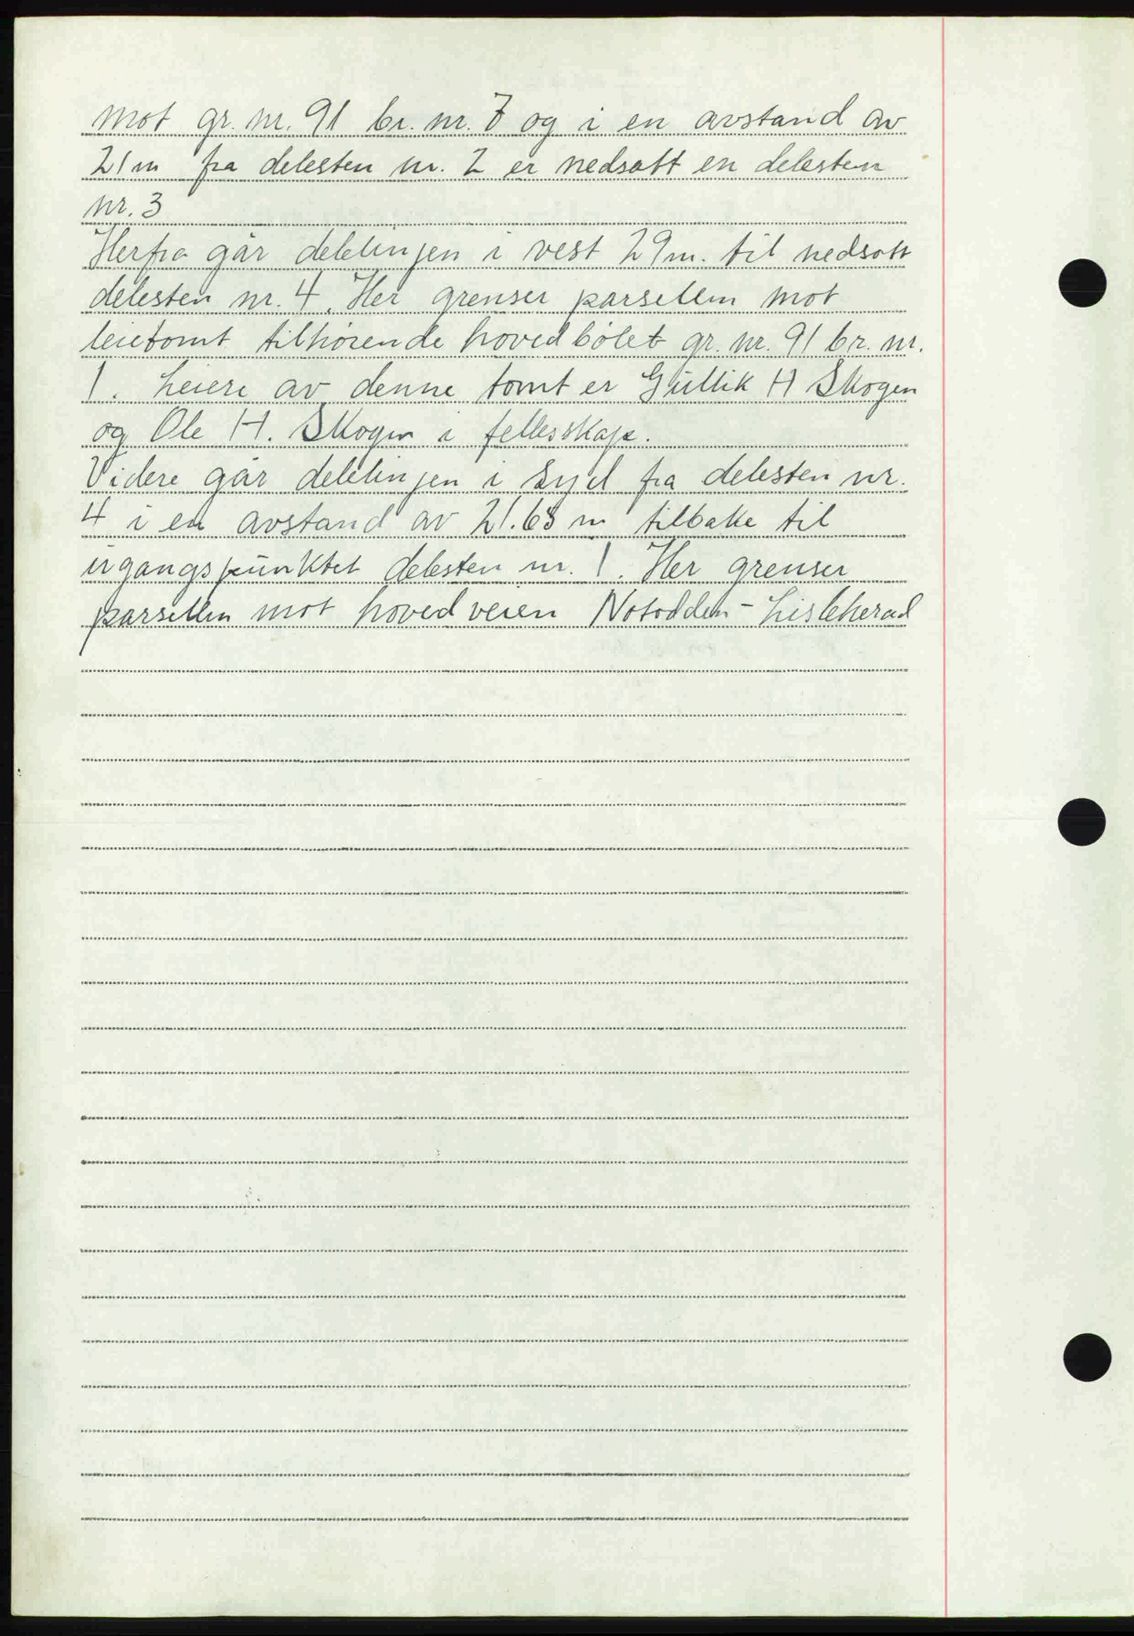 mot gr. nr. 91 br. nr. 7 og i en avstand av
21 m fra delesten nr. 2 er nedsatt en delesten
nr. 3
Herfra går delelinjen i vest 29 m. til nedsatt
delesten nr. 4. Her grenser parsellen mot
leietomt tilhørende hovedbølet gr. nr. 91 br. nr.
1. Leiere av denne tomt er Gullik H Skogen
og Ole H. Skogen i fellesskap.
Videre går delelinjen i syd fra delesten nr.
4 i en avstand av 21.65 m tilbake til
urgangspunktet delesten nr. 1. Her grenser
parsellen mot hovedveien Notodden - Lisleherad